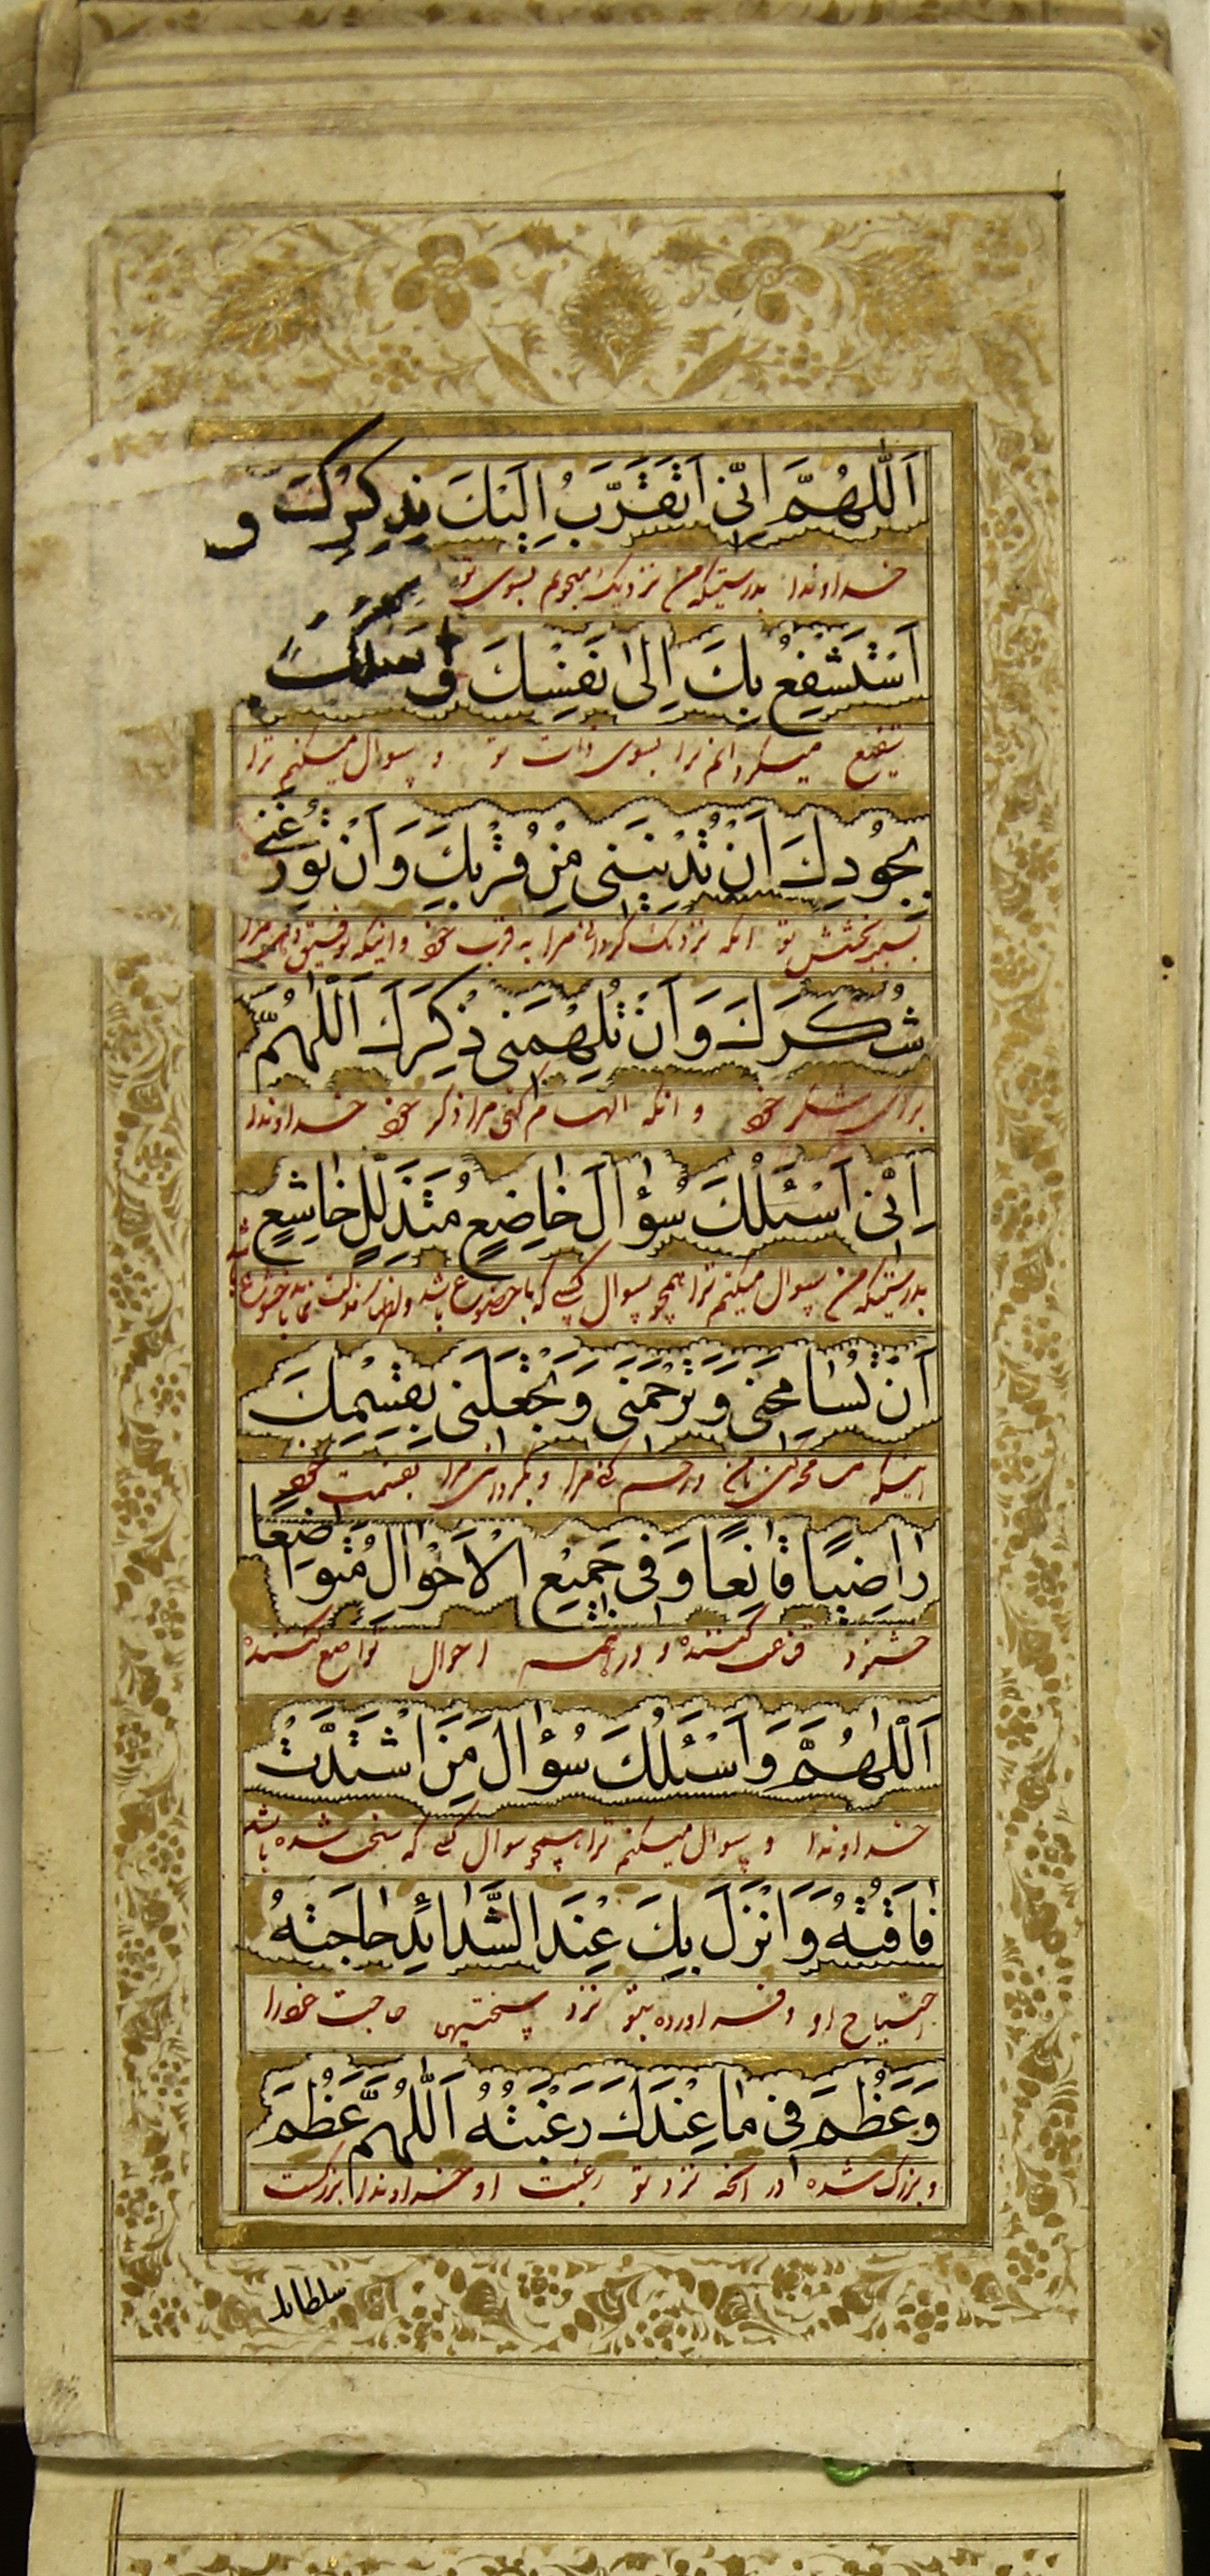 اَللّٰهُمَّ اِنّی اَتَقَرَّبُ اِلَیْكَ بِذِكْرِكَ وَ
خداوندا بدرستیکه من نزدیک میجویم بسوی تو
اَسْتَشْفِعُ بِكَ اِلیٰ نَفْسِكَ وَ اَسْئَلُكَ
شفیع میگردانم ترا بسوی ذات تو و سوال میکنم ترا
بِجُودِكَ اَنْ تُدْنِیَنی مِنْ قُرْبِكَ وَ اَنْ تُوزِعَنی
بسبب بخشش تو انکه نزدیک گردانی مرا به قرب خود و اینکه توفیق دهی مرا
شُكْرَكَ وَ اَنْ تُلْهِمَنی ذِكْرَكَ اَللّٰهُمَّ
برای شکر خود و انکه الهام کنی مرا ذکر خود خداوندا
اِنّی اَسْئَلُكَ سُؤٰالَ خٰاضِعٍ مُتَذَلِّلٍ خٰاشِعٍ
بدرستیکه من سوال میکنم ترا همچو سوال کسی که با خضوع باشد
اَنْ تُسٰامِحَنی وَ تَرْحَمَنی وَ تَجْعَلَنی بِقِسْمِكَ
اینکه مسامحه کنی بامن و رحم کنی مرا و بگردانی مرا بقسمت خود
رٰاضِیًا قٰانِعًا وَ فی جَمیْعِ الْاَحْوٰالِ مُتَوٰاضِعًا
خشنود قناعت کننده و در همه احوال تواضع کننده
اَللّٰهُمَّ وَ اَسْئَلُكَ سُؤٰالَ مَنِ اشْتَدَّتْ
خداوندا و سوال میکنم ترا همچو سوال کسی که سخت شده باشد
فٰاقَتُهُ وَ اَنْزَلَ بِكَ عِنْدَ الشَّدٰائِدِ حٰاجَتَهُ
احتیاج او و فرود اورده بتو نزد سختیها حاجت خود را
وَ عَظُمَ فی مٰا عِنْدَكَ رَغْبَتُهُ اَللّٰهُمَّ عَظُمَ
و بزرگ شده در انچه نزد تو رغبت او خداوندا بزرگست
سلطانك